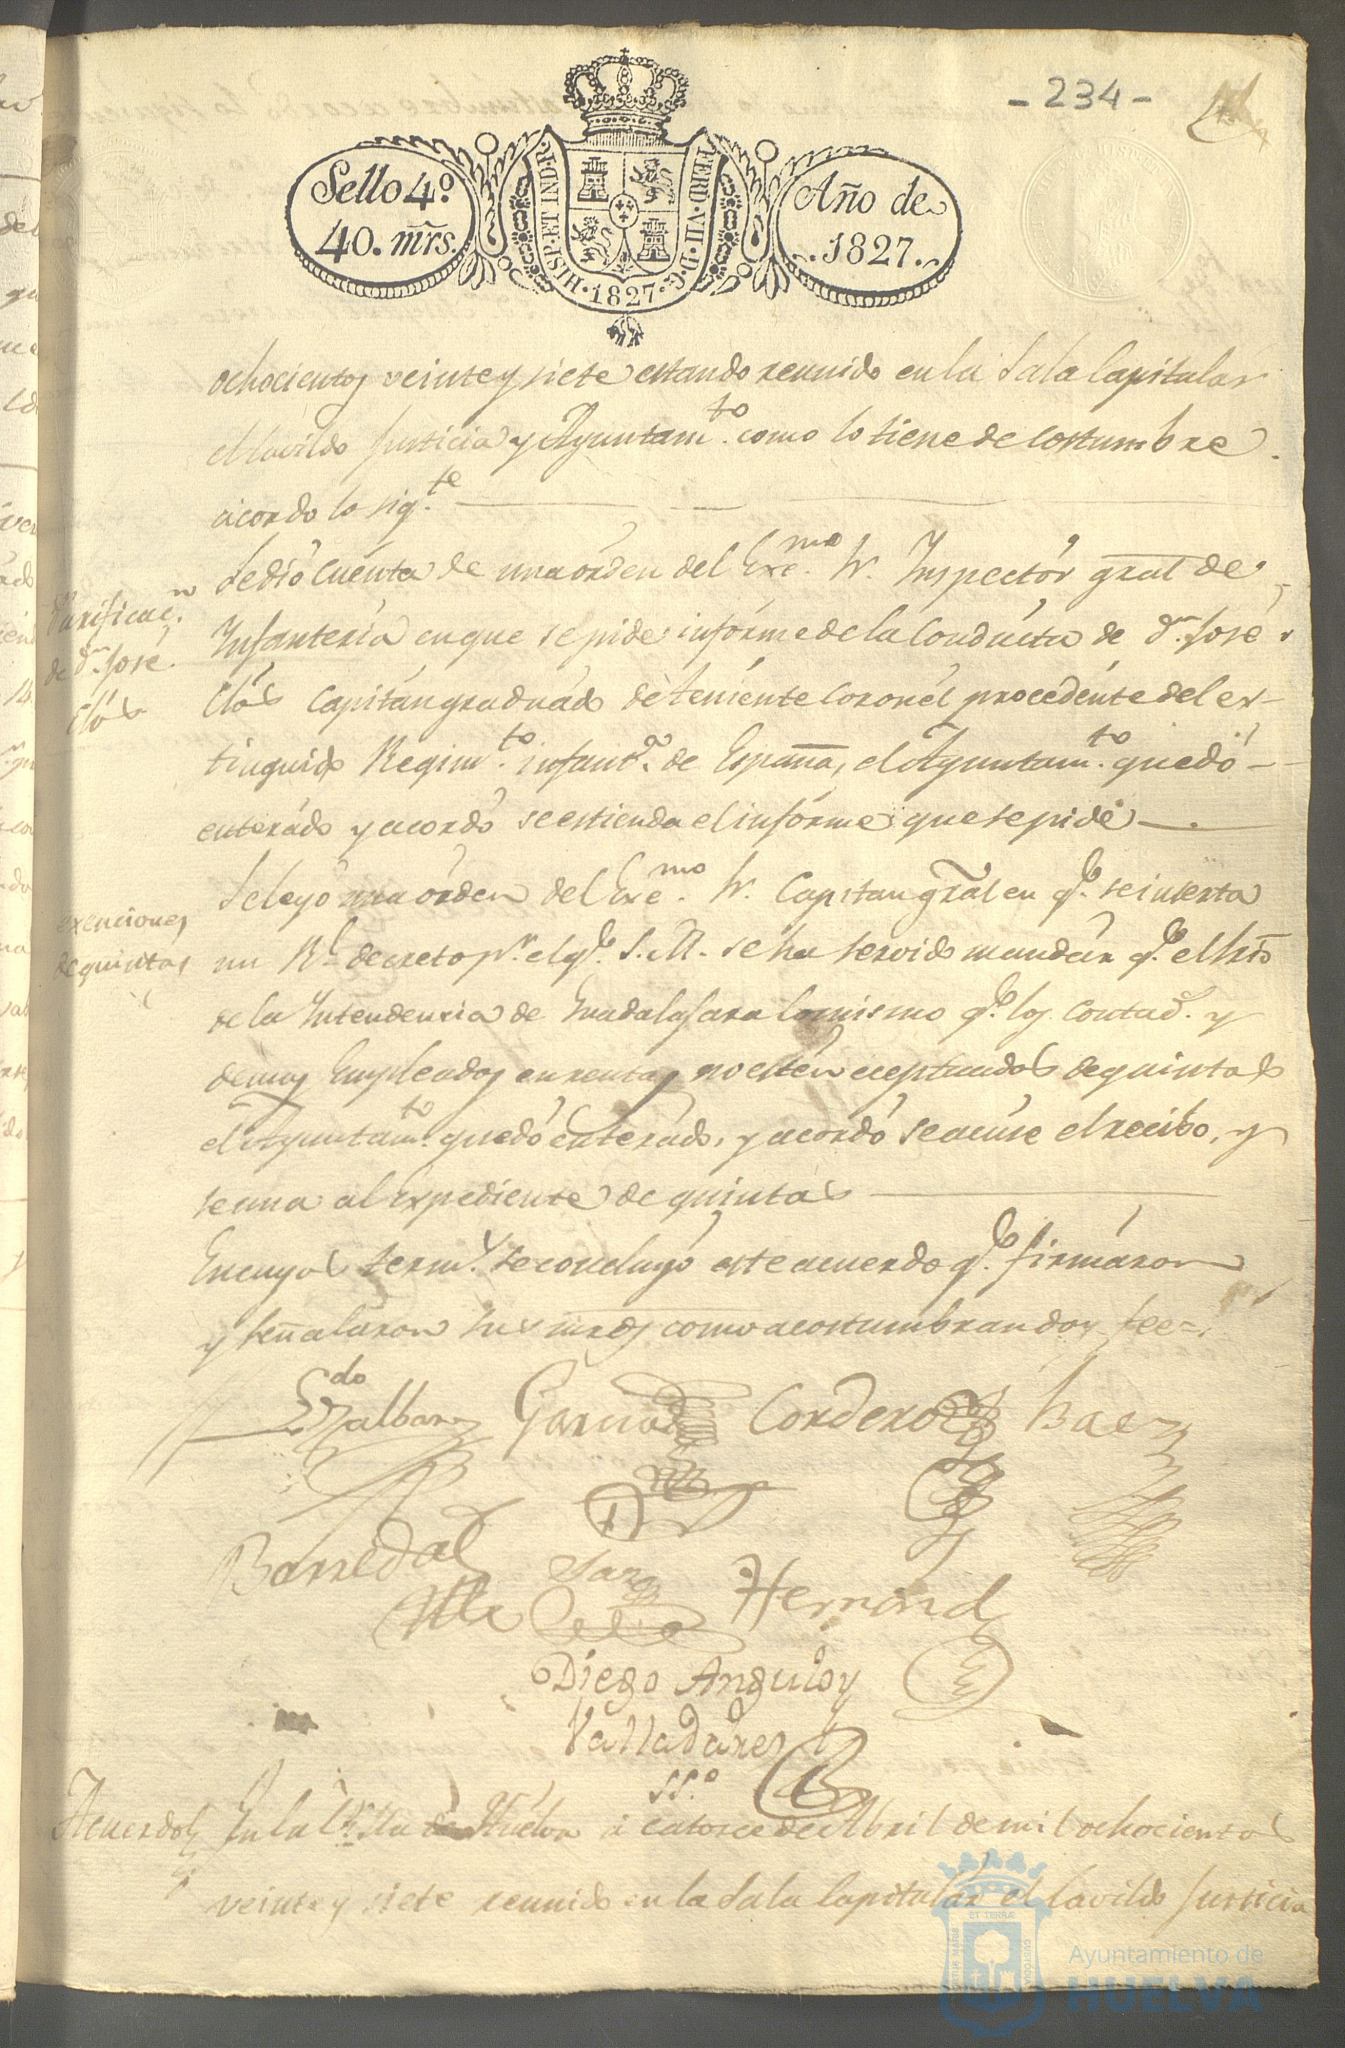 - 234 -
Sello 4º
40. mrs.
HISP. ET IND. R.
FERD. VII. D. G.
1827
Año de
1827.
ochocientos veinte y siete estando reunido en la Sala Capitular
el Cavildo Justicia y Ayuntamto. como lo tiene de costumbre
acordo lo sigte.
Purificacn.
de Dn. José
Clos
Se dió cuenta de una orden del Excmo. Sr. Inspectór gral de
Infantería en que se pide infórme de la Conducta de Dn. José
Clos Capitán graduado de teniénte Coronél procedénte del ex-
tinguido Regimto. infanta. de España, el Ayuntamto. quedó
enterado y acordó se estienda el infórme que se pide
exenciones
de quintas
Se leyó una órden del Excmo. Sr. Capitan gral en qe. se inserta
un Rl. decreto pr. el qe. S. M. se ha servido mandár qe. el Srio
de la Intendencia de Guadalajara lo mismo qe. los Contads. y
demas Empleados en rentas no estén eceptuados de quintas
el Ayuntamto. quedó enterado, y acordó se acuse el recibo, y
se una al Expediente de quintas
En cuyos terms. se concluyó este acuerdo qe. firmáron
y señalaron sus mrds como acostumbran doy fee=
Ldo
Garrido Cordero Baez
Barredal
Hernand
Diego Angulo y
Valladares
SSº
Acuerdo
En la Villa de Huelva á catorce de Abril de mil ochocientos
veinte y siete reunido en la Sala Capitulár el Cavildo Justicia
Ayuntamiento de
HUELVA